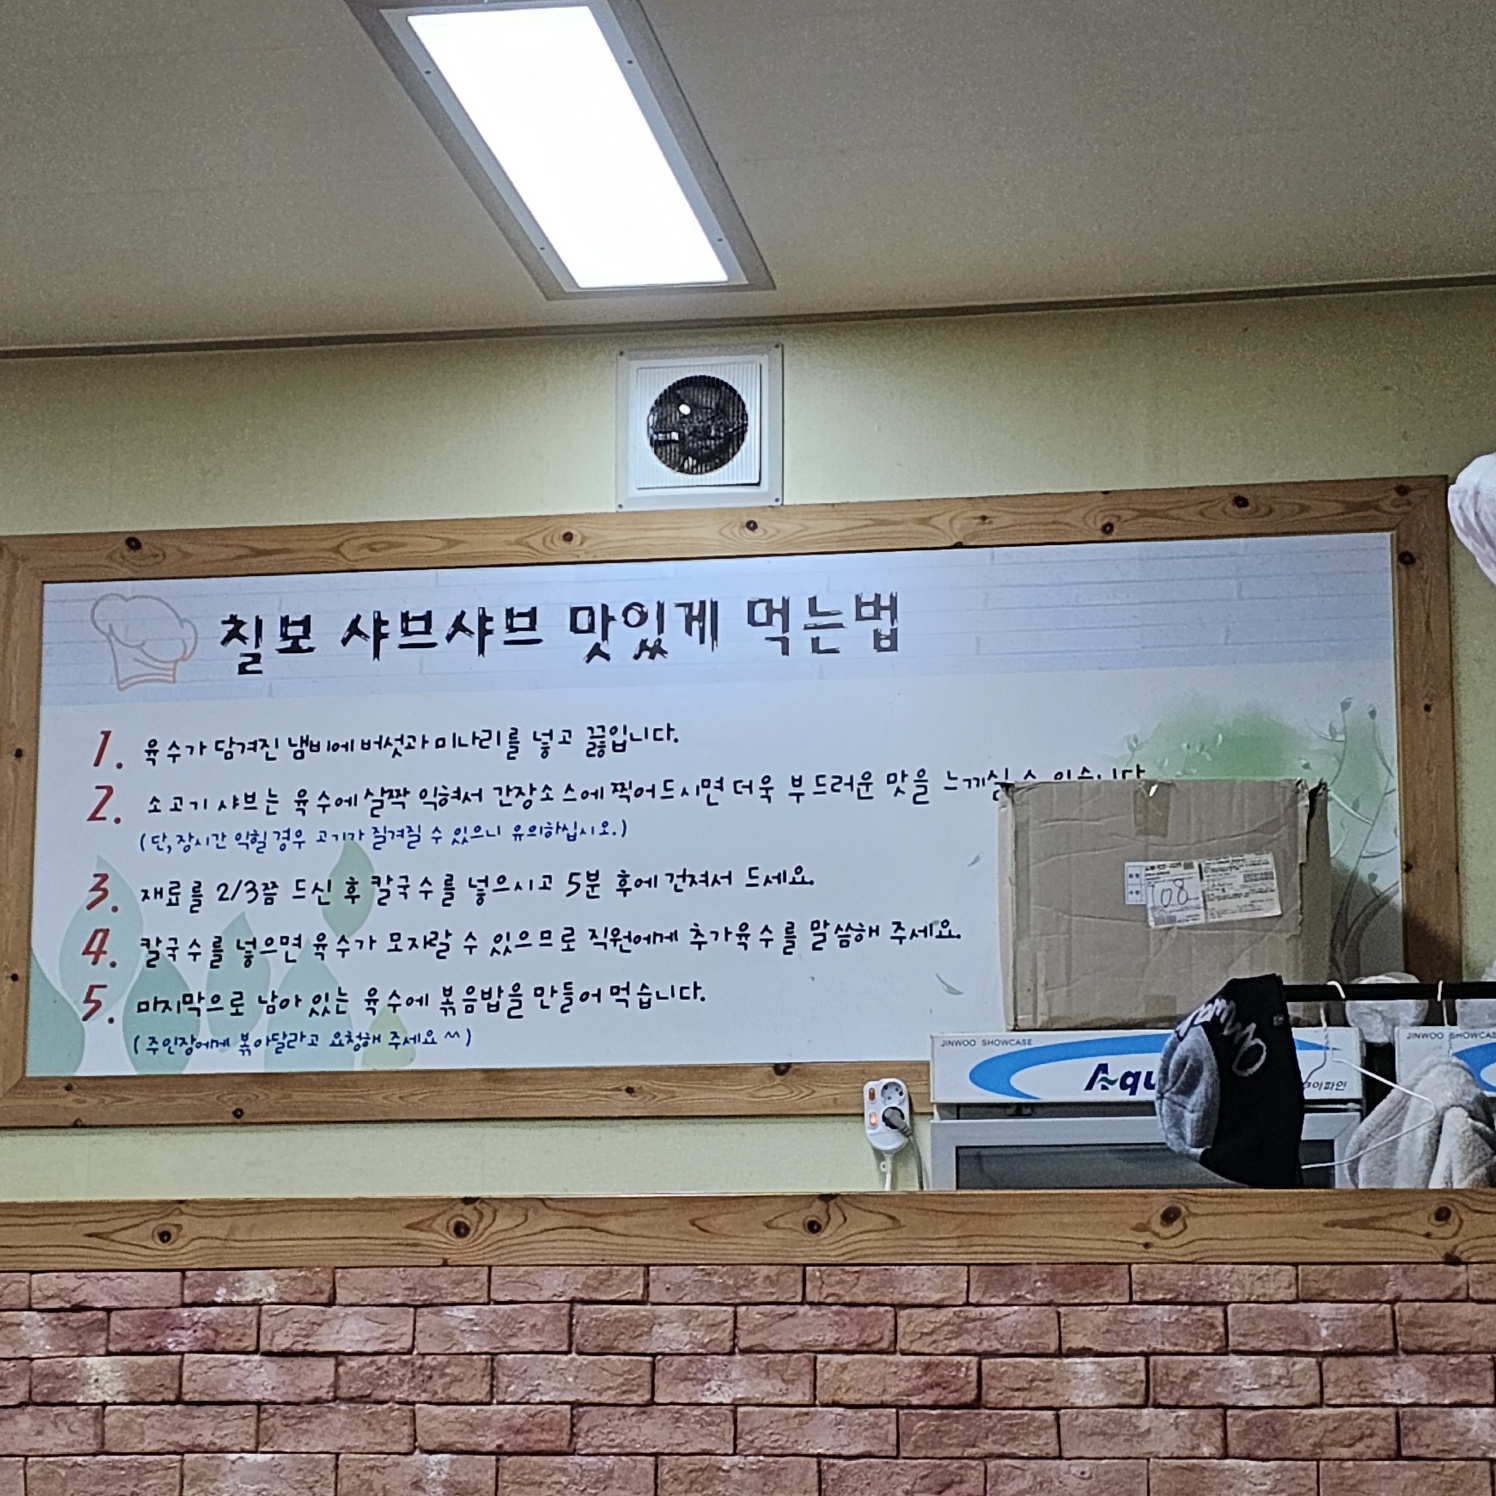 칠보 샤브샤브 맛있게 먹는법
1. 육수가 담겨진 냄비에 버섯과 미나리를 넣고 끓입니다.
2. 소고기 샤브는 육수에 살짝 익혀서 간장소스에 찍어드시면 더욱 부드러운 맛을 느끼실 수 있습니다
(단, 장시간 익힐 경우 고기가 질겨질 수 있으니 유의하십시오.)
3. 재료를 2/3쯤 드신 후 칼국수를 넣으시고 5분 후에 건져서 드세요.
4. 칼국수를 넣으면 육수가 모자랄 수 있으므로 직원에게 추가육수를 말씀해 주세요.
5. 마지막으로 남아 있는 육수에 볶음밥을 만들어 먹습니다.
(주인장에게 볶아달라고 요청해 주세요 ^^)
108
JINWOO SHOWCASE
JINWOO SHOWCASE
Aqu